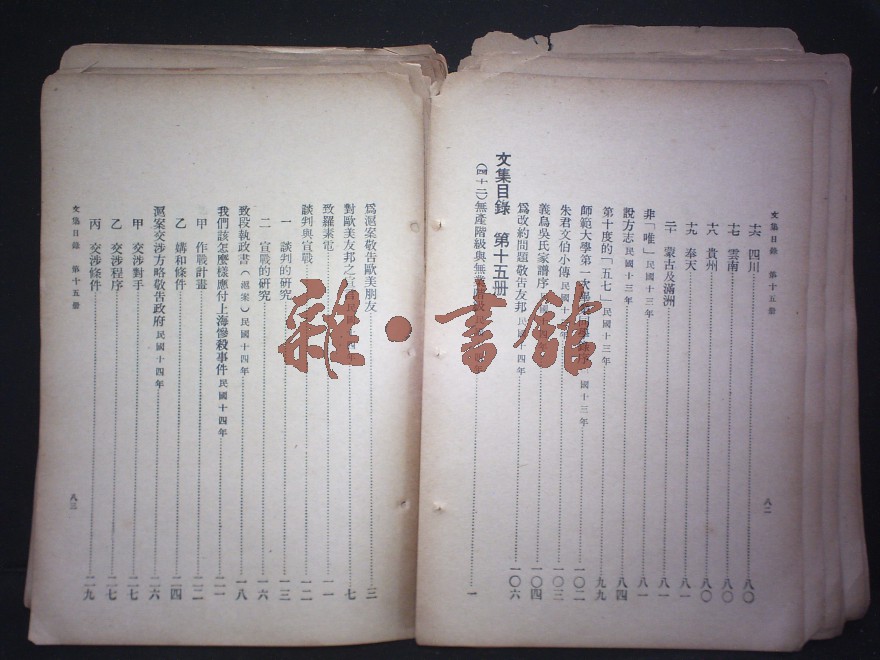 文集目錄 第十五册
六 四川 八〇
七 雲南 八〇
八 貴州 八〇
九 奉天 八一
十 蒙古及滿洲 八一
非「唯」民國十三年 八一
說方志民國十三年 八四
第十度的「五七」民國十三年 九九
師範大學第一次畢 國十三年 一〇二
朱君文伯小傳民國十 年 一〇三
義烏吳氏家譜序 一〇四
爲改約問題敬告友邦民國十四年 一〇六
文集目錄 第十五册
(四十二)無產階級與無業階級 一
八二
文集目錄 第十五册
爲滬案敬告歐美朋友 三
對歐美友邦之宣言 四年 七
致羅素電 一一
談判與宣戰 一二
一 談判的研究 一三
二 宣戰的研究 一六
致段執政書(滬案)民國十四年 一八
我們該怎麼樣應付上海慘殺事件民國十四年 二一
甲 作戰計畫 二二
乙 媾和條件 二四
滬案交涉方略敬告政府民國十四年 二六
甲 交涉對手 二七
乙 交涉程序 二七
丙 交涉條件 二九
八三
雜·書館